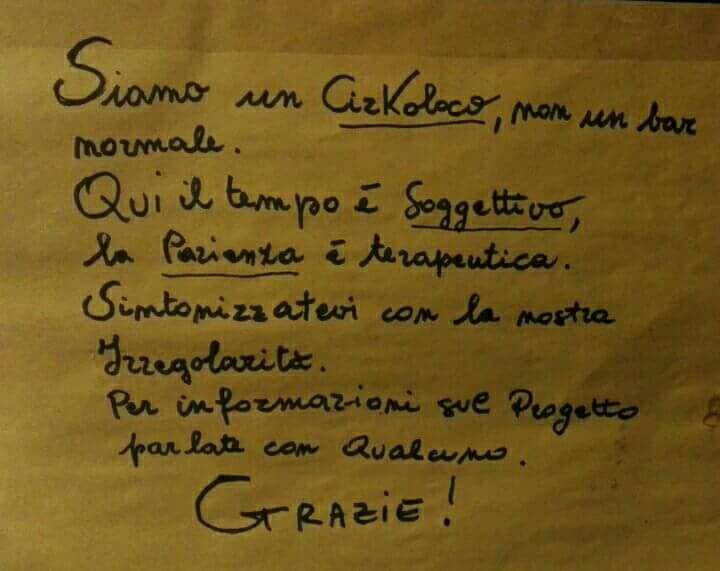 Siamo un CirKoloco, non un bar
normale.
Qui il tempo è Soggettivo,
la Pazienza è terapeutica.
Sintonizzatevi con la nostra
Irregolarità.
Per informazioni sul Progetto
parlate con Qualcuno.
GRAZIE!